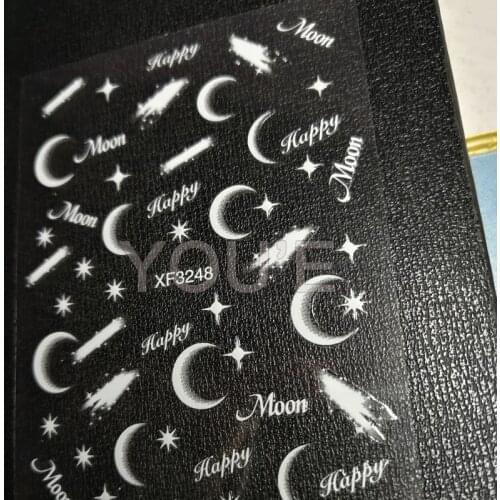 Moon
Happy
Happy
Moon
Happy
Moon
Moon
YOU'E
XF3248
Happy
Moon
Happy
Moon
Happy